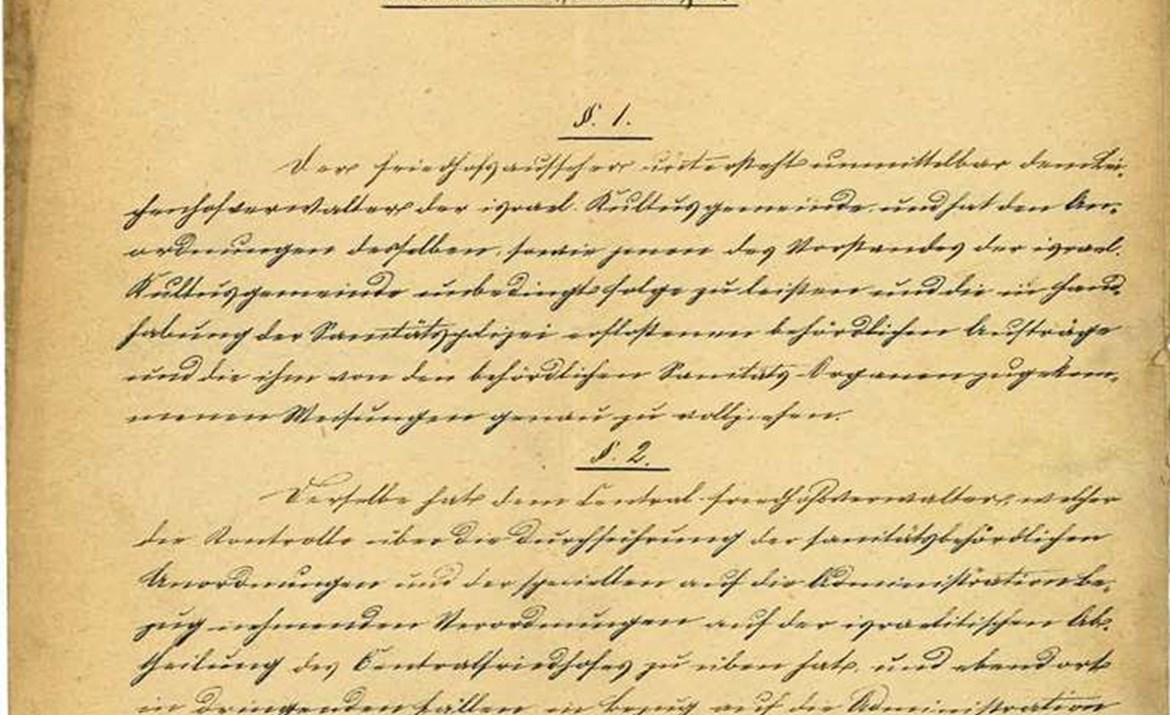 §. 1.
Der Friedhofsaufseher untersteht unmittelbar dem Lei-
chenhofverwalter der israel. Kultusgemeinde und hat den An-
ordnungen desselben, sowie jenen des Vorstandes der israel.
Kultusgemeinde unbedingt Folge zu leisten und die in Hand-
habung der Sanitätspolizei erflossenen behördlichen Aufträge
und die ihm von den behördlichen Sanitäts-Organen zugekom-
menen Weisungen genau zu vollziehen.
§. 2.
Derselbe hat dem Central-Friedhofsverwalter, welcher
die Kontrolle über die Durchführung der sanitätsbehördlichen
Anordnungen und der speciellen auf die Administration Be-
zug nehmenden Verordnungen auf der israelitischen Ab-
theilung des Centralfriedhofes zu üben hat, und ebendort
in dringenden Fällen in Bezug auf die Administration